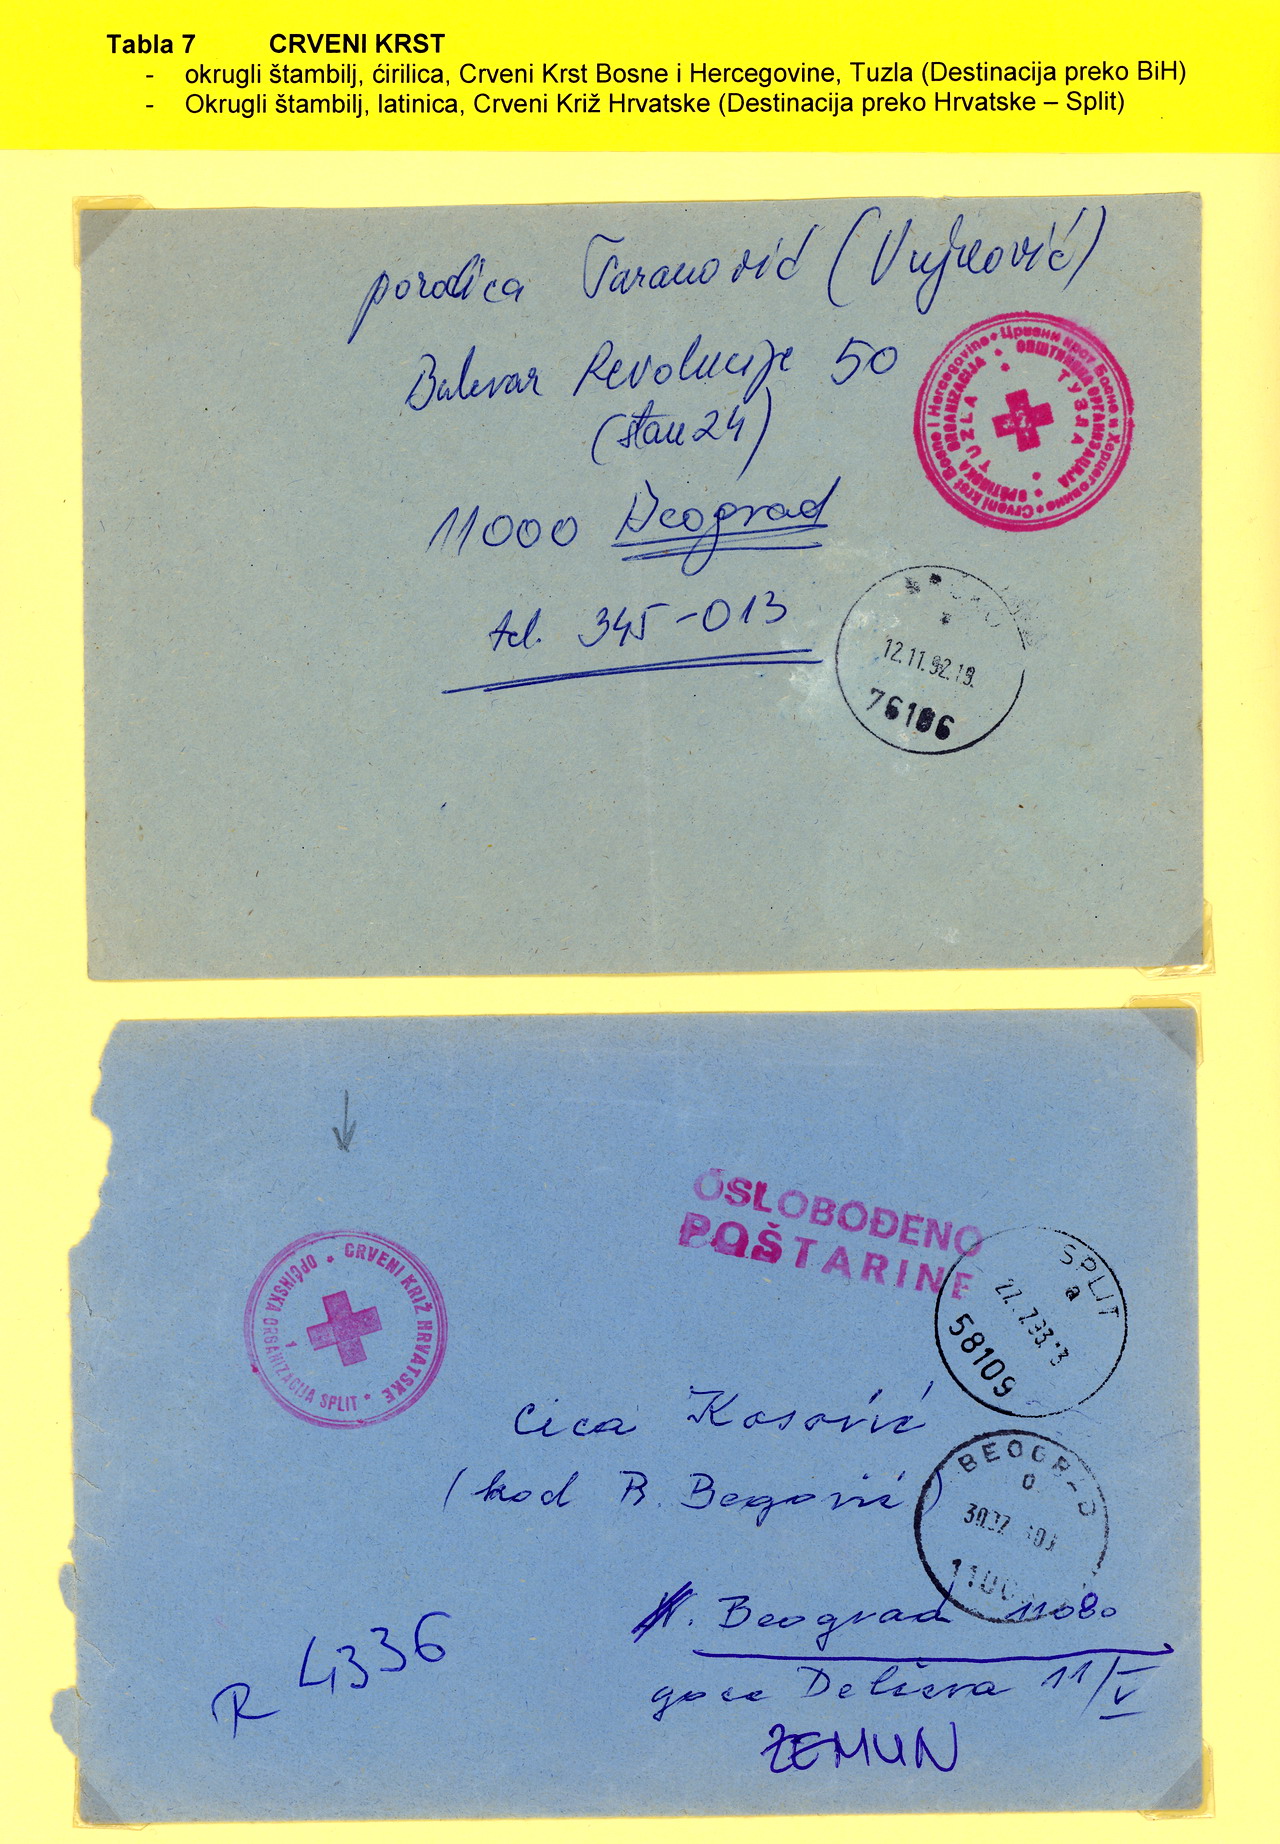 Tabla 7 CRVENI KRST
- okrugli štambilj, ćirilica, Crveni Krst Bosne i Hercegovine, Tuzla (Destinacija preko BiH)
- Okrugli štambilj, latinica, Crveni Križ Hrvatske (Destinacija preko Hrvatske – Split)
porodica Taranović (Vujković)
Bulevar Revolucije 50
(stan 24)
11000 Beograd
tel. 345-013
Црвени крст Босне и Херцеговине • Crveni krst Bosne i Hercegovine •
ОПШТИНСКА ОРГАНИЗАЦИЈА • OPŠTINSKA ORGANIZACIJA •
ТУЗЛА • TUZLA
12.11.92.19.
76106
OSLOBOĐENO
POŠTARINE
CRVENI KRIŽ HRVATSKE •
OPĆINSKA ORGANIZACIJA SPLIT •
1
SPLIT
a
27.7.93.13
58109
Cica Kosović
(kod B. Begović)
BEOGRAD
Beograd 11080
goce Delčeva 11/V
ZEMUN
R 4336